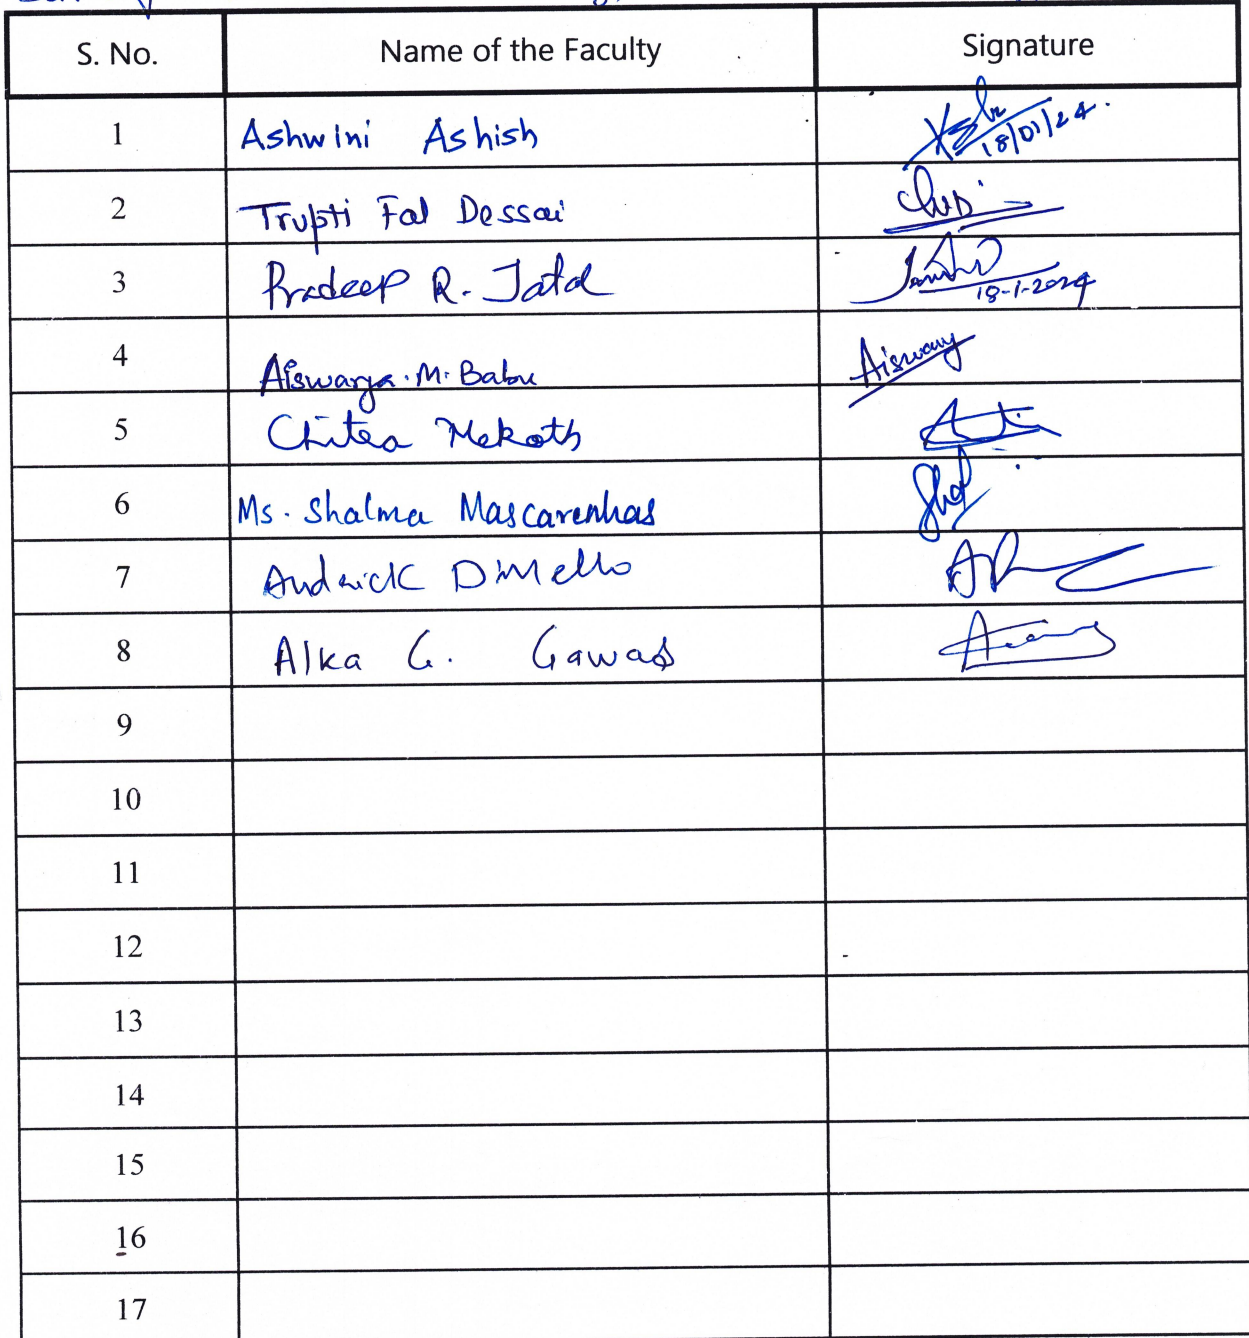 S. No. Name of the Faculty Signature
1 Ashwini Ashish 18/01/24.
2 Trupti Fal Dessai
3 Pradeep R. Jatal 18-1-2024
4 Aiswarya.M.Babu Aiswary
5 Chitra Mekoth
6 Ms. Shalma Mascarenhas
7 Audrick D'Mello
8 Alka G. Gawas
9
10
11
12
13
14
15
16
17